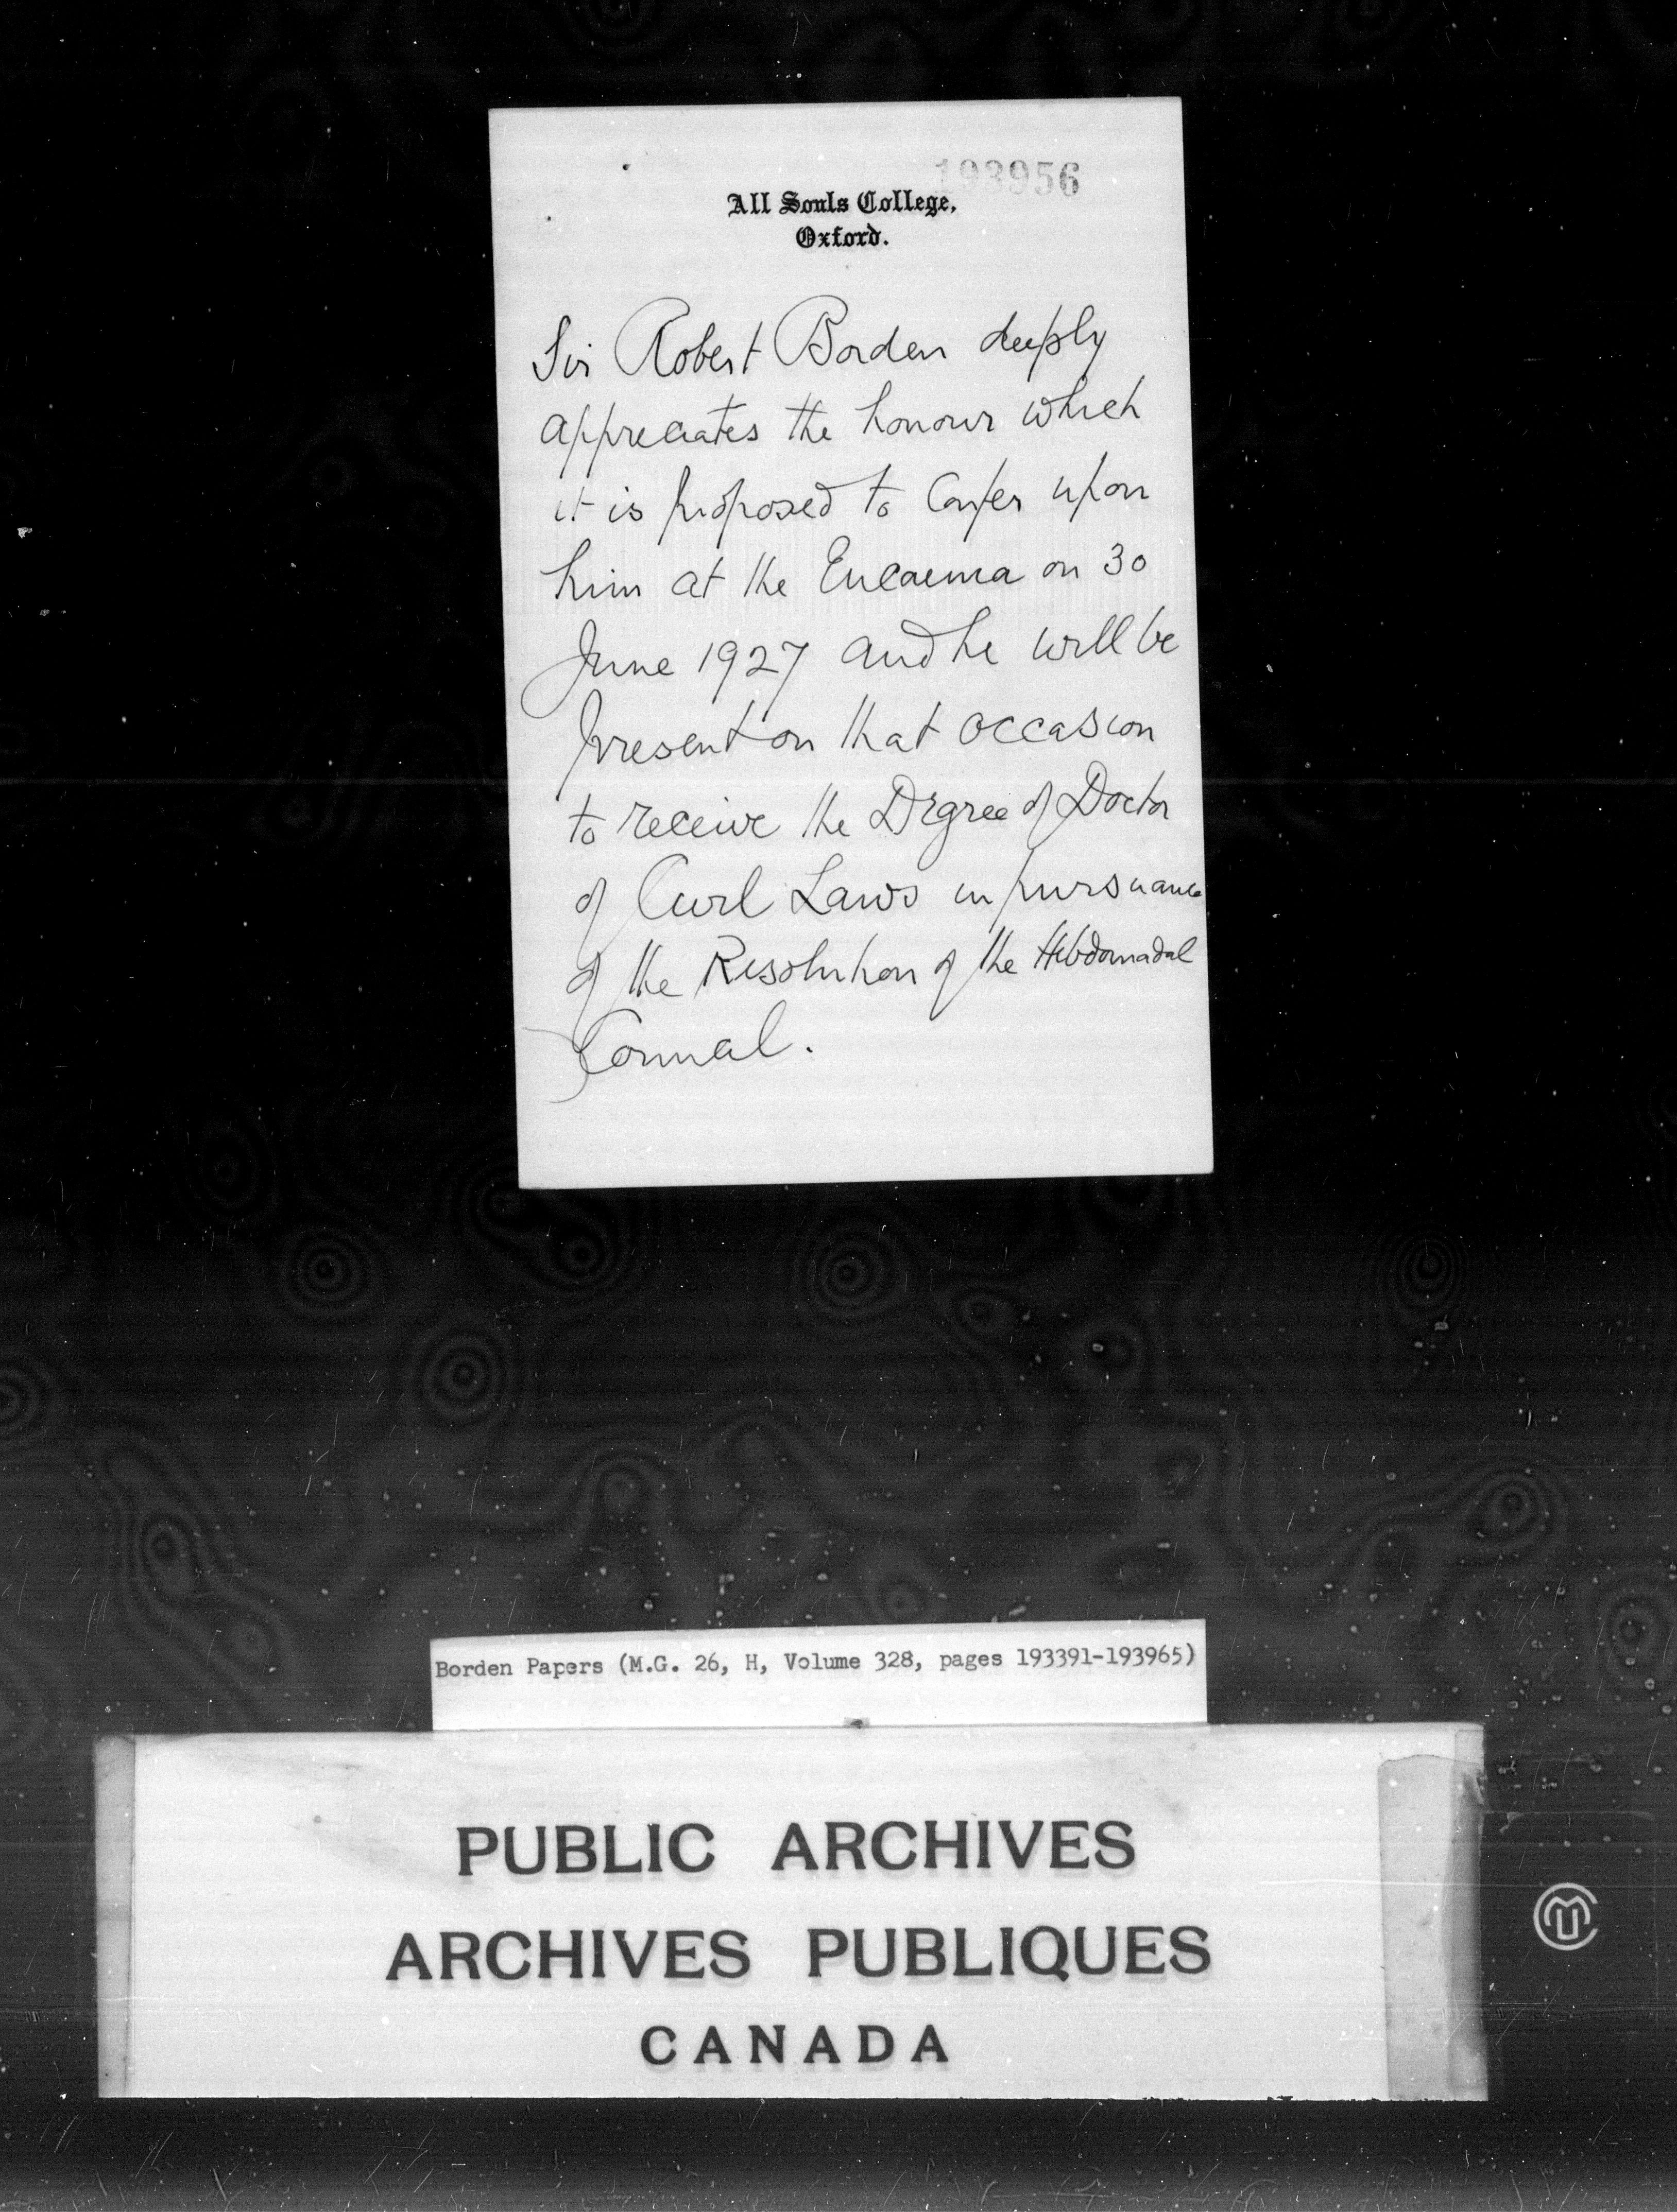 193956
All Souls College,
Oxford.
Sir Robert Borden deeply
appreciates the honour which
it is proposed to confer upon
him at the Encaenia on 30
June 1927 and he will be
present on that occasion
to receive the Degree of Doctor
of Civil Laws in pursuance
of the Resolution of the Hebdomadal
Council.
Borden Papers (M.G. 26, H, Volume 328, pages 193391-193965)
PUBLIC ARCHIVES
ARCHIVES PUBLIQUES
CANADA